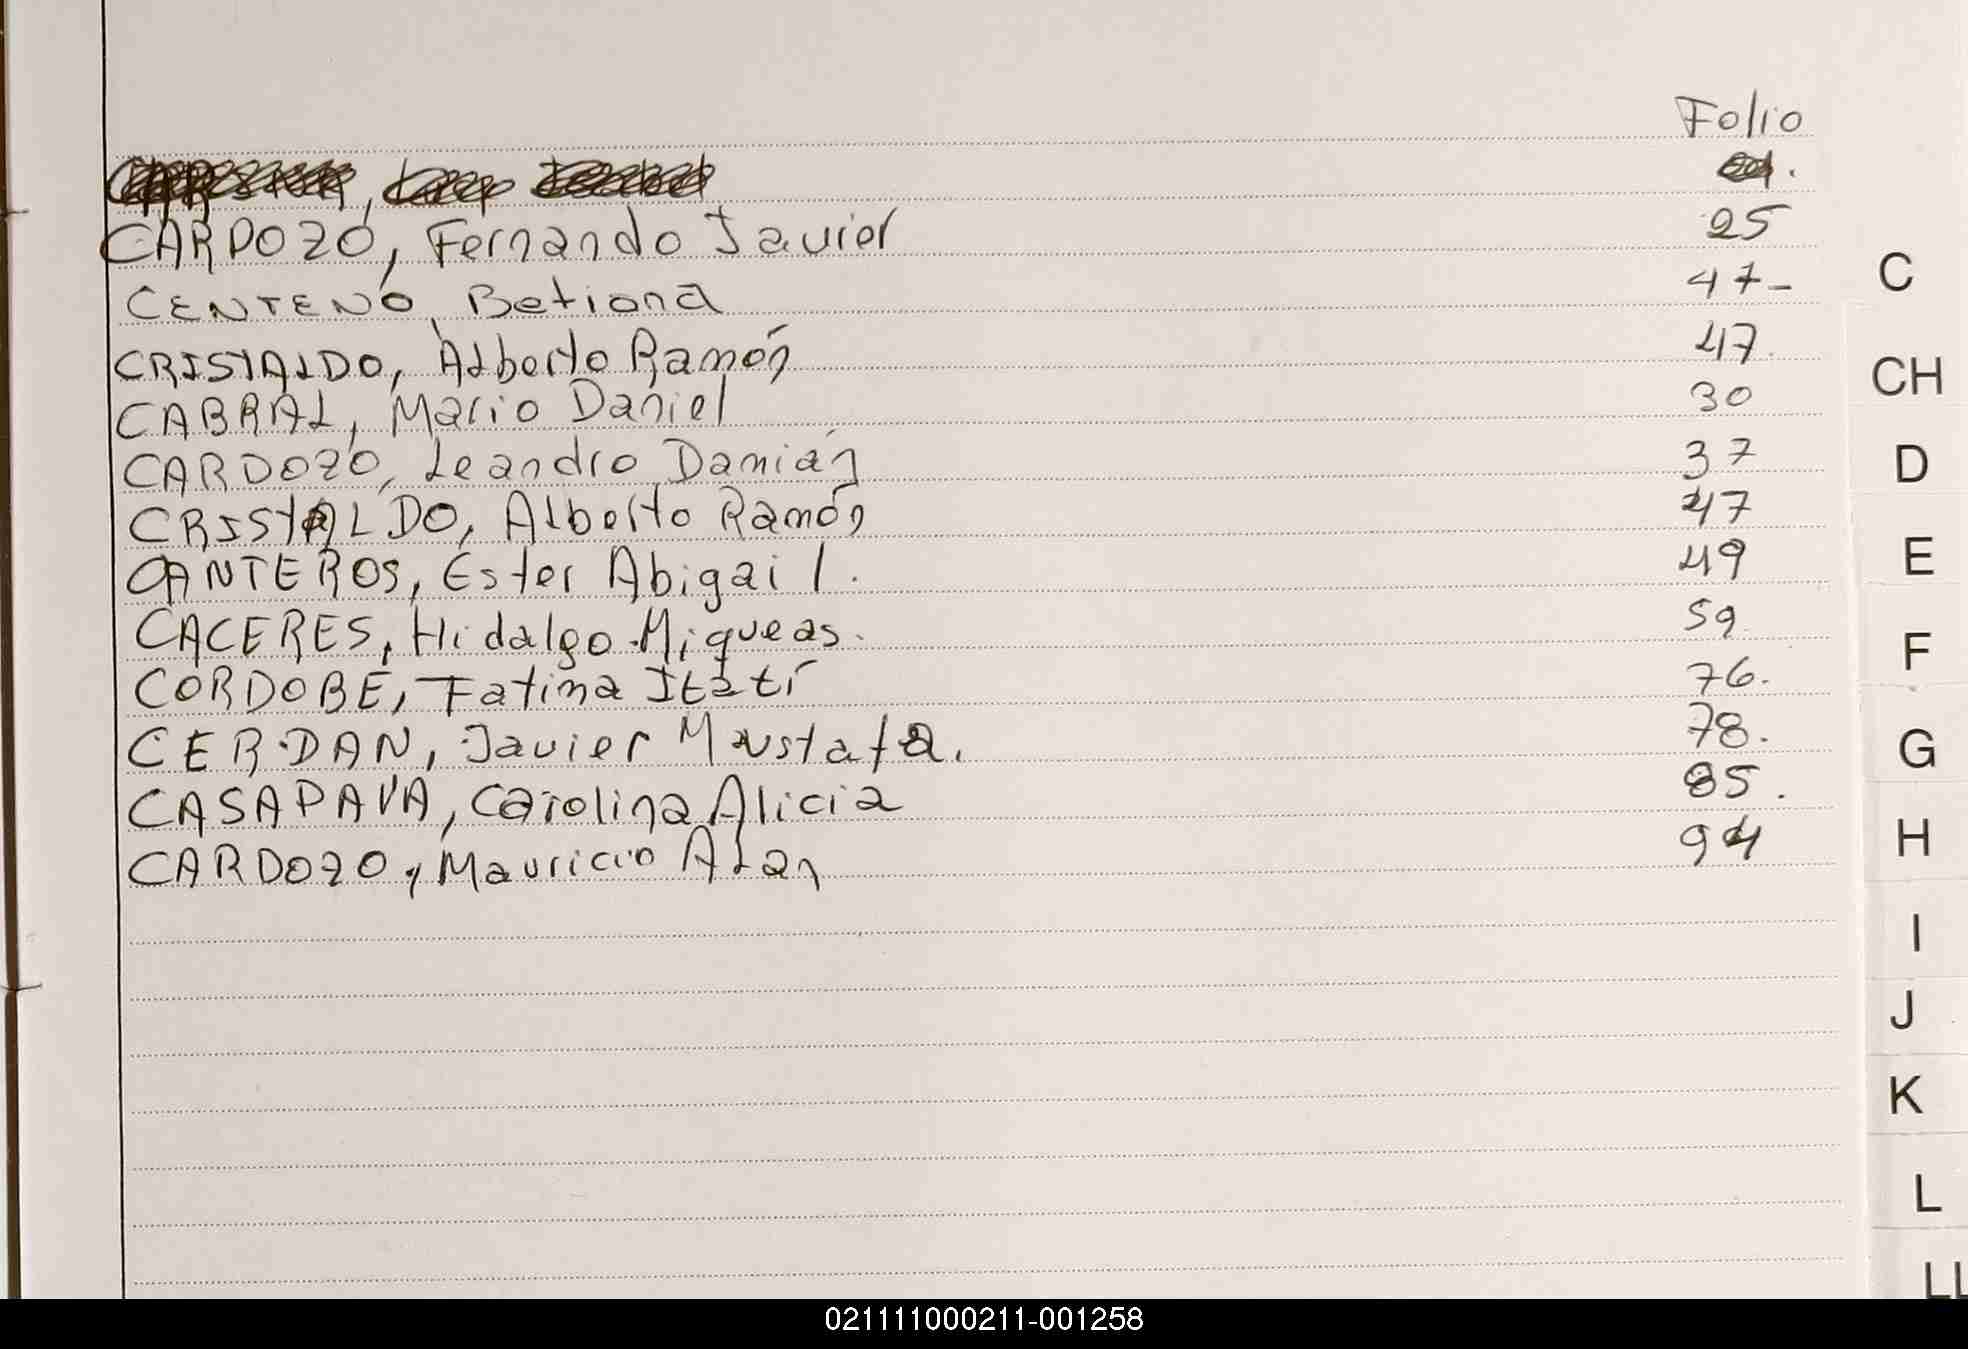 Folio
CARDOZO, Fernando Javier 25
CENTENO, Betiana 47-
CRISTALDO, Alberto Ramón 47.
CABRAL, Mario Daniel 30
CARDOZO, Leandro Damián 37
CRISTALDO, Alberto Ramón 47
CANTEROS, Ester Abigail. 49
CACERES, Hidalgo Miqueas. 59
CORDOBE, Fatima Itatí 76.
CERDAN, Javier Mustafa. 78.
CASAPAVA, Carolina Alicia 85.
CARDOZO, Mauricio Alan 94
C
CH
D
E
F
G
H
I
J
K
L
LL
021111000211-001258